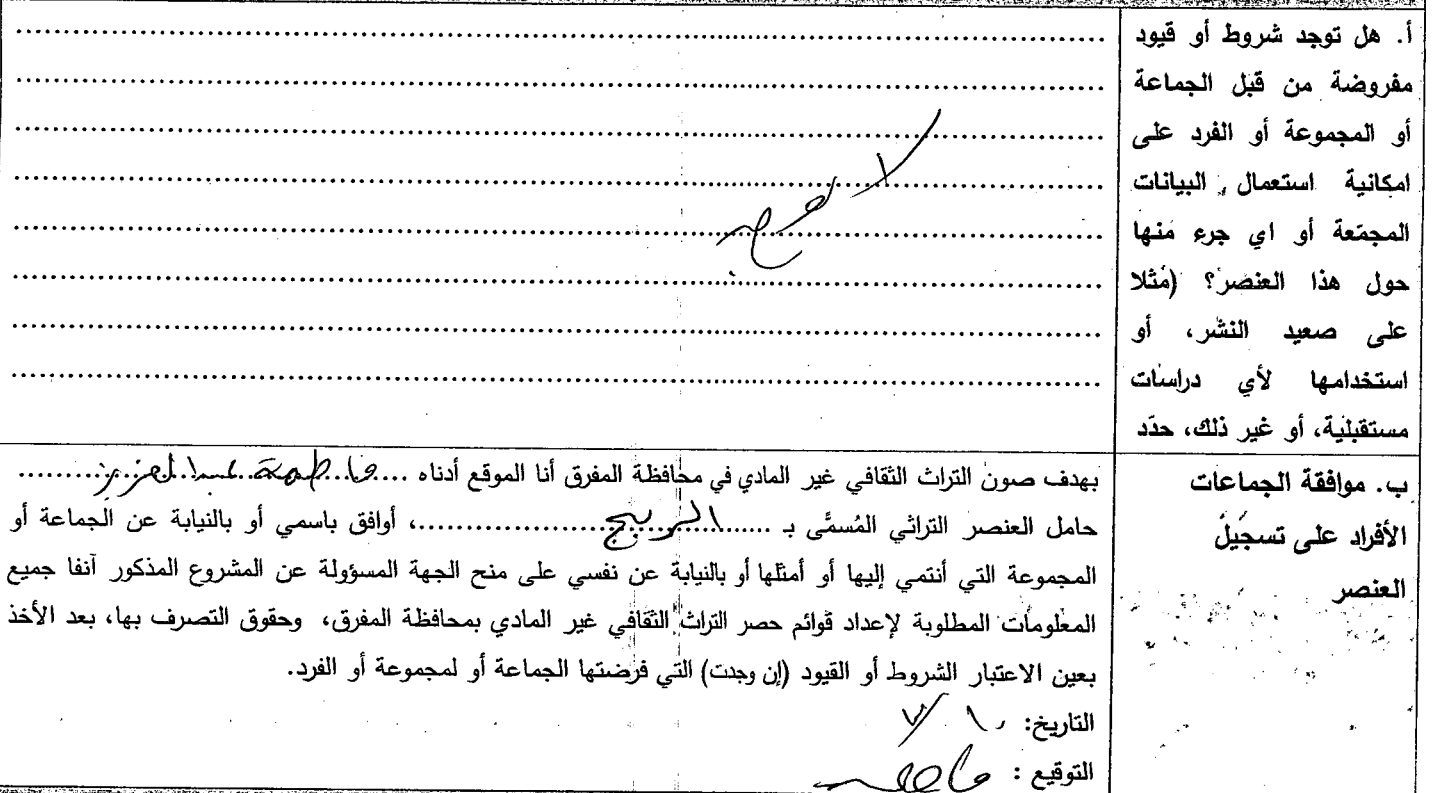 أ. هل توجد شروط أو قيود
مفروضة من قبل الجماعة
أو المجموعة أو الفرد على
امكانية استعمال البيانات
المجمّعة أو اي جرء منها
حول هذا العنصر؟ (مثلا
على صعيد النشر، أو
استخدامها لأي دراسات
مستقبلية، أو غير ذلك، حدّد
لا
ب. موافقة الجماعات
الأفراد على تسجيل
العنصر
بهدف صون التراث الثقافي غير المادي في محافظة المفرق أنا الموقع أدناه ....فاطمة عبد العزيز....
حامل العنصر التراثي المُسمَّى بـ ........................، أوافق باسمي أو بالنيابة عن الجماعة أو
المجموعة التي أنتمي إليها أو أمثلها أو بالنيابة عن نفسي على منح الجهة المسؤولة عن المشروع المذكور آنفا جميع
المعلومات المطلوبة لإعداد قوائم حصر التراث الثقافي غير المادي بمحافظة المفرق، وحقوق التصرف بها، بعد الأخذ
بعين الاعتبار الشروط أو القيود (إن وجدت) التي فرضتها الجماعة أو لمجموعة أو الفرد.
التاريخ: ١٠/٧
التوقيع :